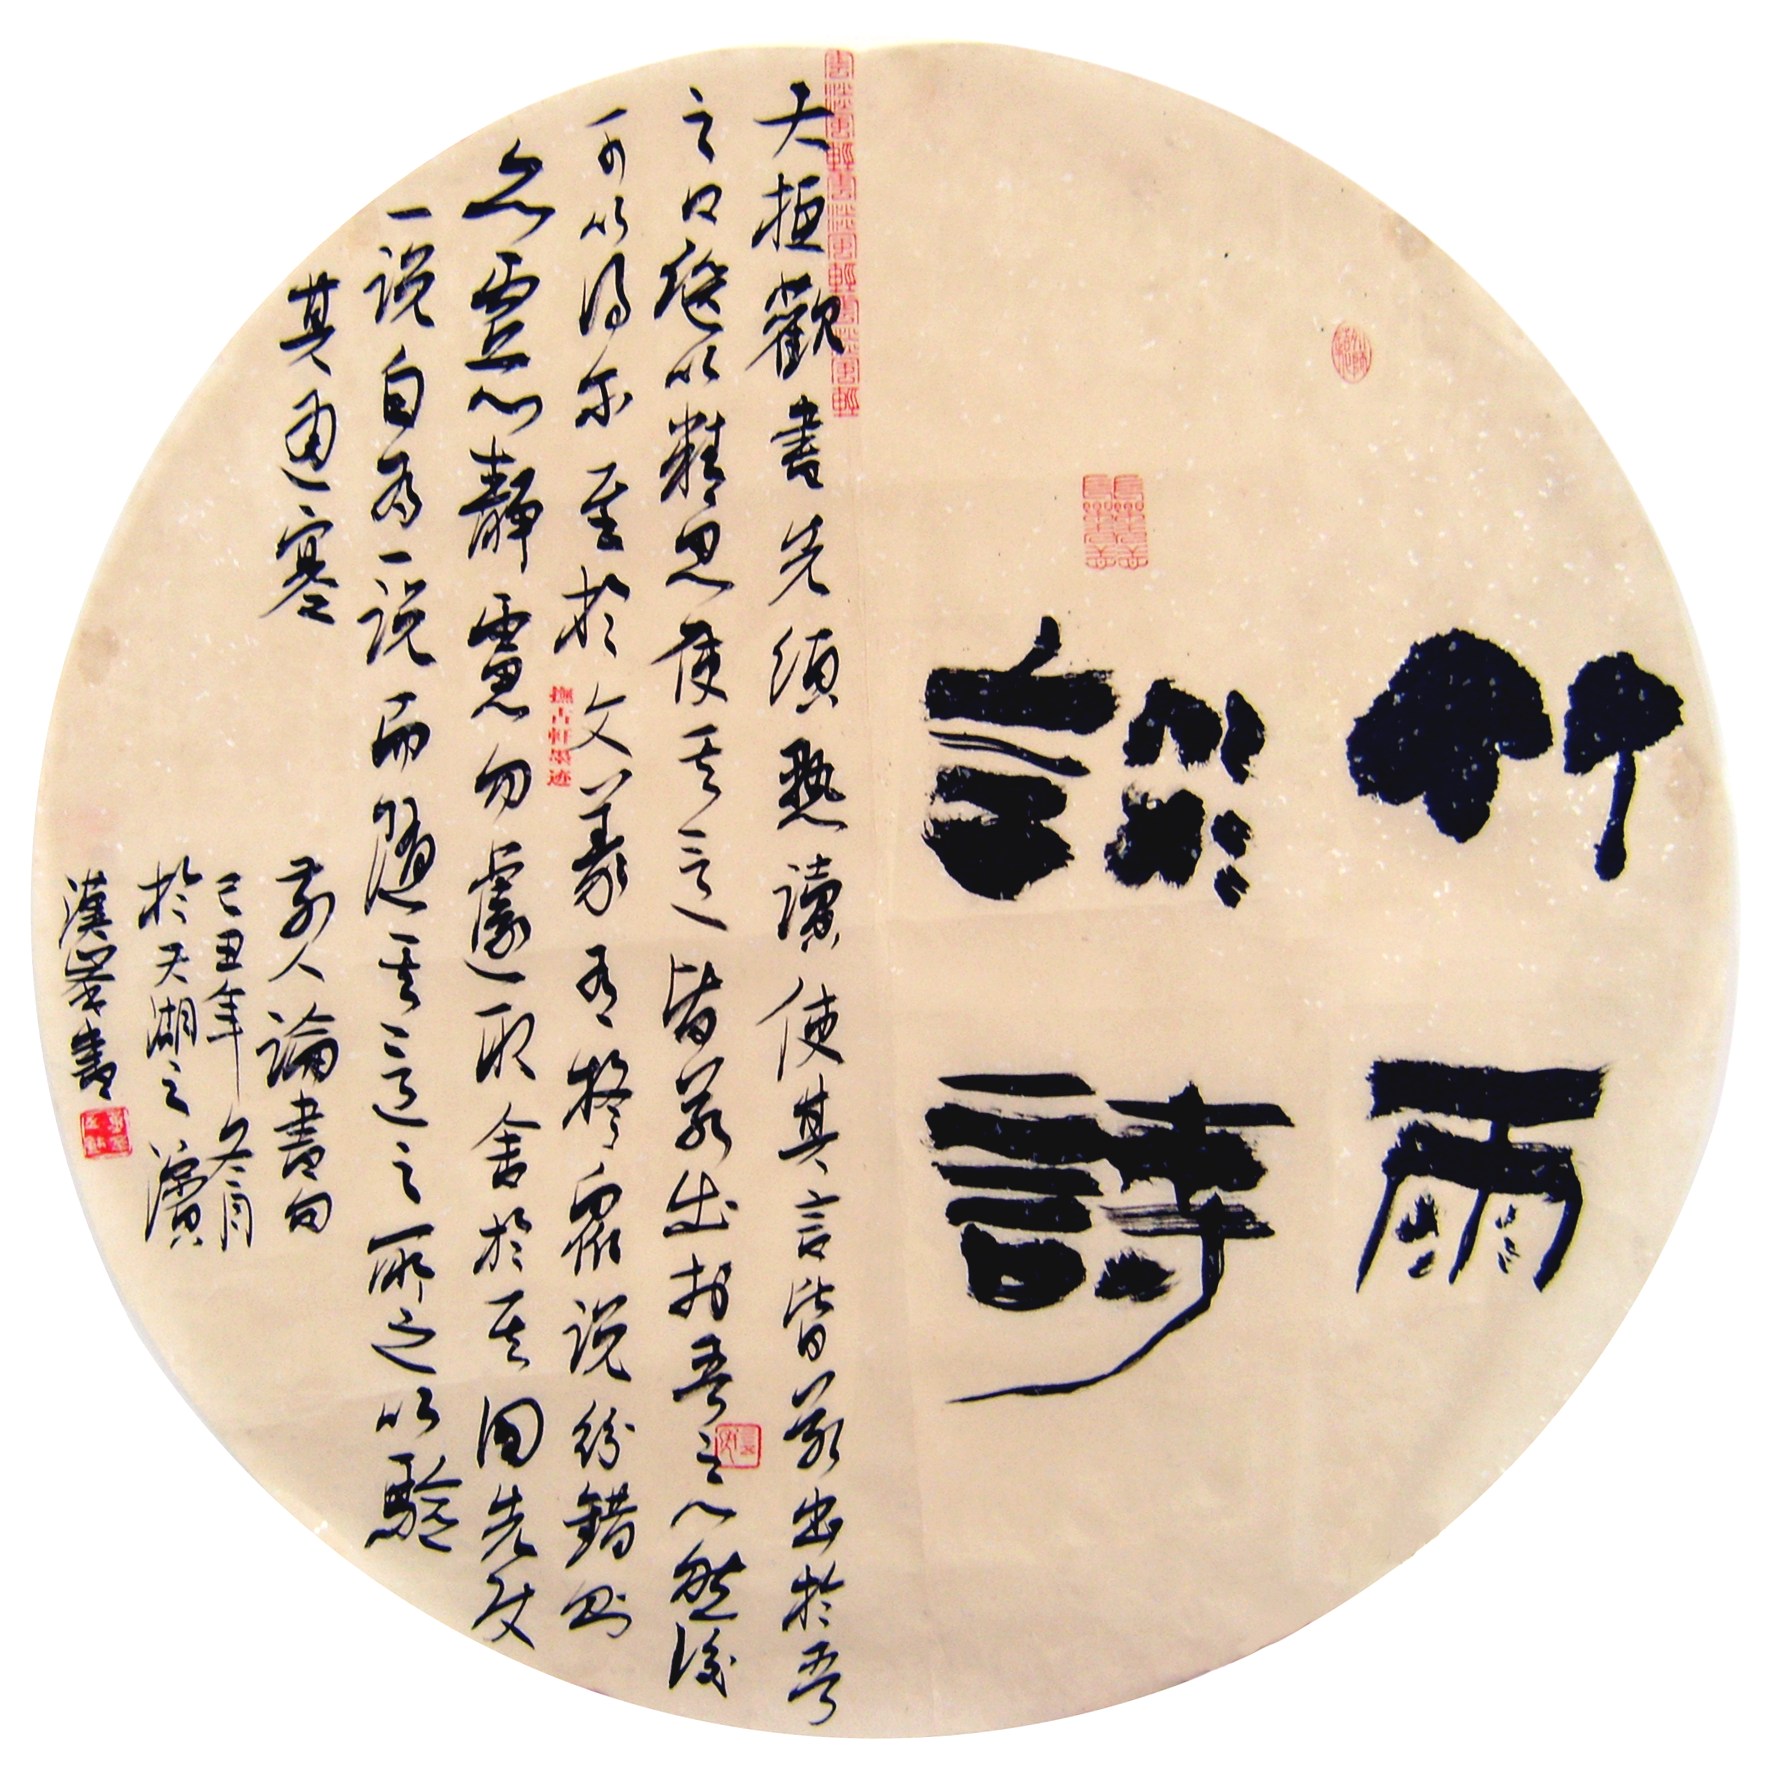 竹雨
談詩
大抵觀書先須熟讀使其言皆若出於吾
之口繼以精思使其意皆若出於吾之心然後
可以得尔至於文義有疑衆说紛錯則
亦虛心靜慮勿遽取舍於其间先使
一说自为一说而隨其意之所之以驗
其通塞
前人論書句
己丑年冬月
於天湖之濱
漢 書
撫古軒墨迹